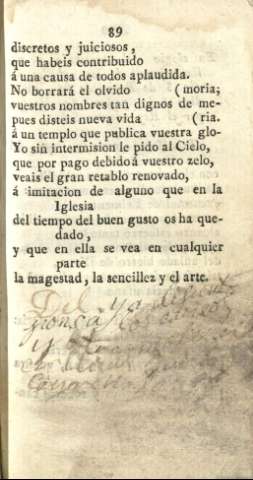 89
discretos y juiciosos,
que habeis contribuido
á una causa de todos aplaudida.
No borrará el olvido (moria;
vuestros nombres tan dignos de me-
pues disteis nueva vida (ria.
á un templo que publica vuestra glo-
Yo sin intermision le pido al Cielo,
que por pago debido á vuestro zelo,
veais el gran retablo renovado,
á imitacion de alguno que en la
Iglesia
del tiempo del buen gusto os ha que-
dado,
y que en ella se vea en cualquier
parte
la magestad, la sencillez y el arte.
Del